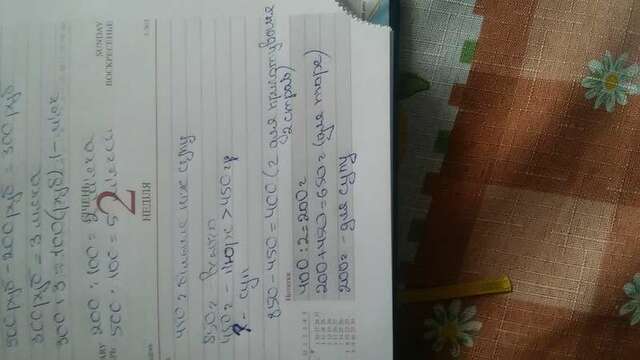 500 руб - 200 руб = 300 руб
300 руб = 3 мєска
300 : 3 = 100 (руб) 1 -
200 : 100 = 2
500 : 100 = 5
СІЧЕНЬ
2
НЕДІЛЯ
SUNDAY
ВОСКРЕСЕНЬЕ
450 г більше ніж супу
850 г -
450 г - пюре > 450 гр
? - суп
850 - 450 = 400 (г для приготування
2 страв)
Нотатки
400 : 2 = 200 г
200 + 450 = 650 г (для пюре)
200 г - для супу